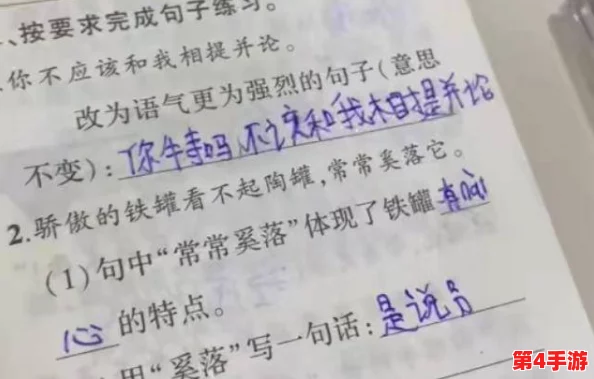 、按要求完成句子练习。
.你不应该和我相提并论。
改为语气更为强烈的句子(意思
不变)：你牛寺吗,不该和我相提并论
2.骄傲的铁罐看不起陶罐,常常奚落它。
(1)句中“常常奚落”体现了铁罐有问
心的特点。
用“奚落”写一句话：是说员
第4手游